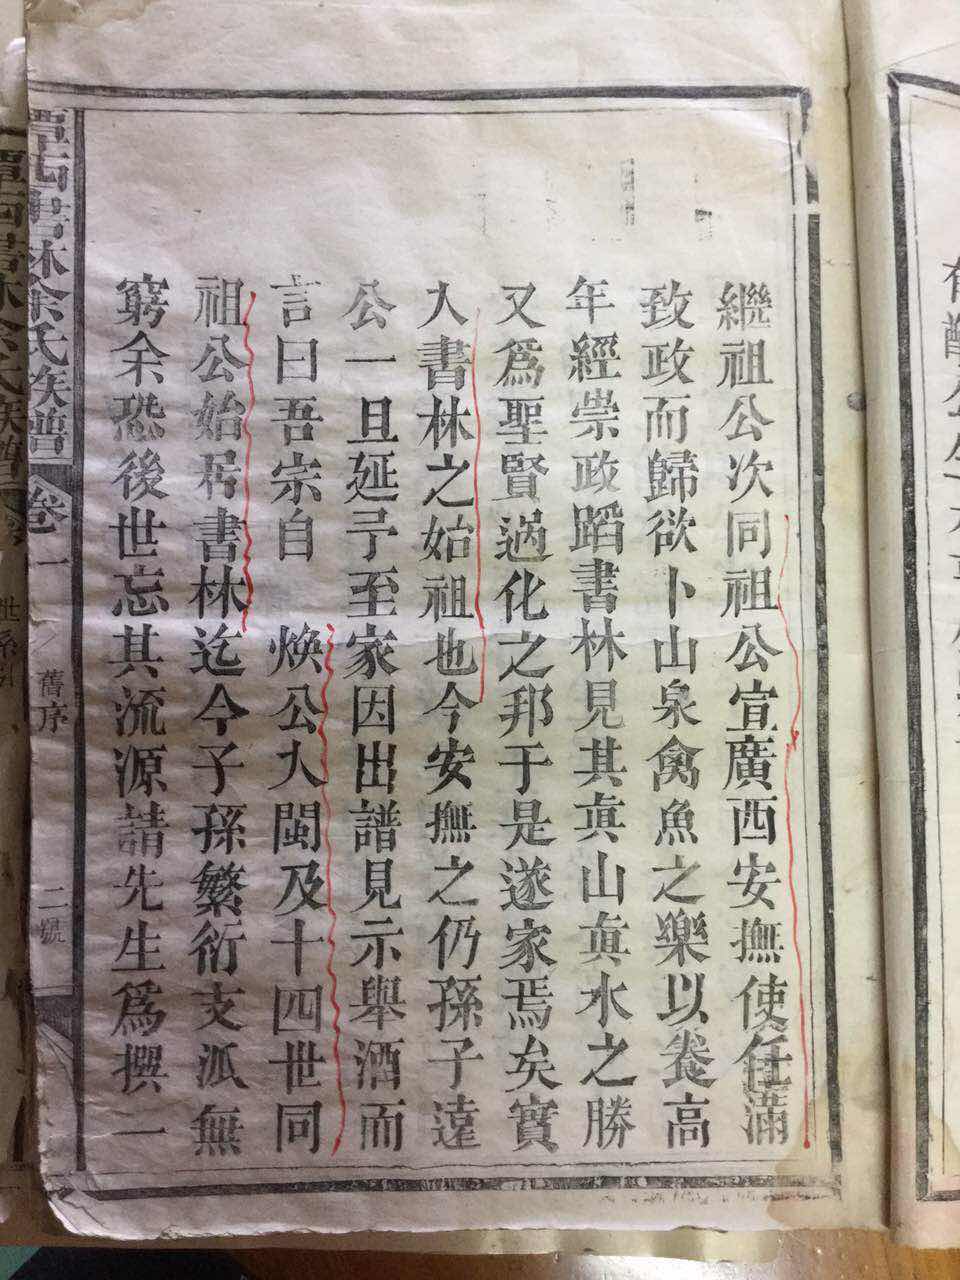 繼祖公次同祖公宣廣西安撫使任滿
致政而歸欲卜山泉禽魚之樂以養高
年經崇政蹈書林見其眞山眞水之勝
又爲聖賢過化之邦于是遂家焉矣實
入書林之始祖也今安撫之仍孫子遠
公一旦延予至家因出譜見示舉酒而
言曰吾宗自 煥公入閩及十四世同
祖公始居書林迄今子孫繁衍支派無
窮余恐後世忘其流源請先生爲撰一
潭西書林余氏族譜 卷一 舊序 二號
潭西書林余氏族譜